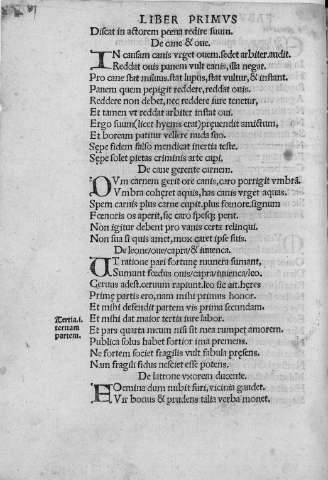 LIBER PRIMVS
Discat in actorem pœna redire suum.
De cane & oue.
IN causam canis vrget ouem. sedet arbiter. audit.
Reddat ouis panem vult canis, ista negat.
Pro cane stat miluus. stat lupus, stat vultur, & instant.
Panem quem pepigit reddere, reddat ouis.
Reddere non debet, nec reddere iure tenetur,
Et tamen vt reddat arbiter instat oui.
Ergo suum (licet hyems erat) pręuendit amictum,
Et boream patitur vellere nuda suo.
Sępe fidem falso mendicat inertia teste.
Sępe solet pietas criminis arte capi.
De cane gerente carnem.
DVm carnem gerit ore canis, caro porrigit vmbrā.
Vmbra cohęret aquis, has canis vrget aquas.
Spem carnis plus carne cupit. plus fœnore. signum
Fœnoris os aperit, sic caro spesqꝫ perit.
Non igitur debent pro vanis certa relinqui.
Non sua si quis amet, mox caret ipse suis.
De leone/oue/capra/& iuuenca.
VT ratione pari fortunę munera sumant,
Sumunt fœdus ouis/capra/iuuenca/leo.
Ceruus adest. ceruum rapiunt. leo sic ait. hęres
Primę partis ero, nam mihi primus honor.
Et mihi defendit partem vis prima secundam.
Tertia. i. Et mihi dat maior tertia iure labor.
tertiam Et pars quarta meum nisi sit mea rumpet amorem.
partem. Publica solus habet fortior ima premens.
Ne fortem societ fragilis vult fabula pręsens.
Nam fragili fidus nesciet esse potens.
De latrone vxorem ducente.
FOemina dum nubit furi, vicinia gaudet.
Vir bonus & prudens talia verba monet.